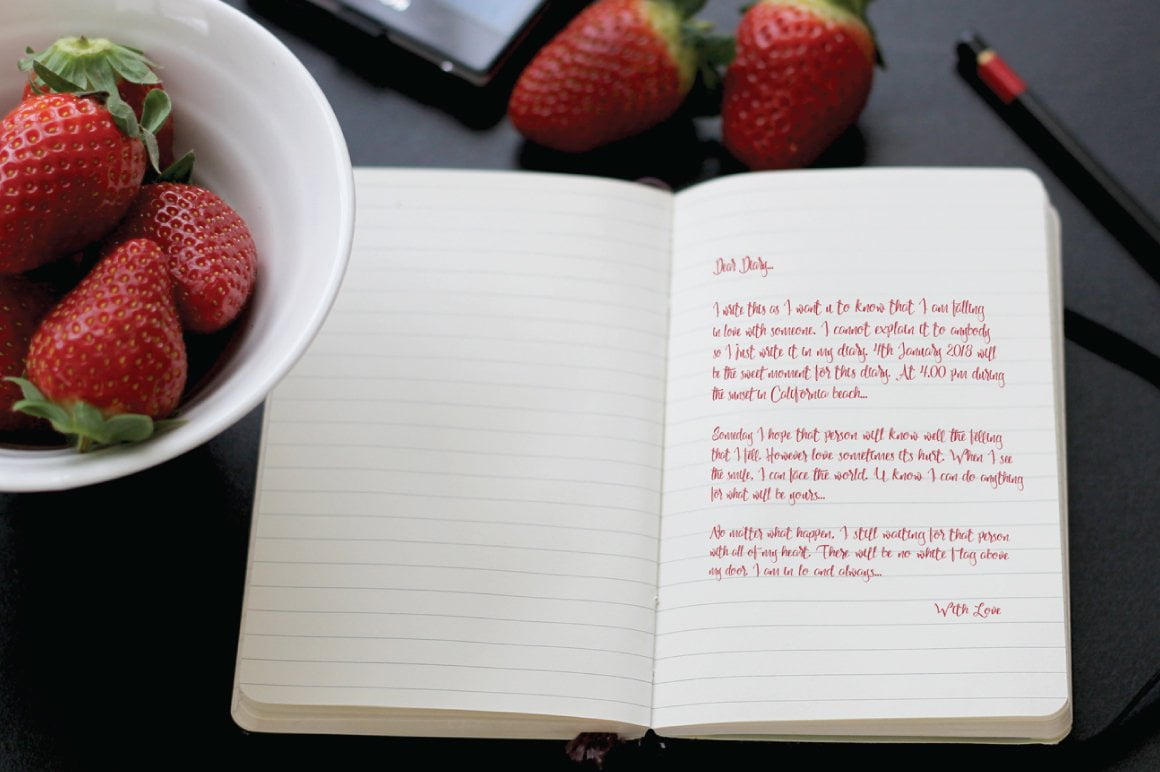 Dear Diary...
I write this as I want u to know that I am falling
in love with someone. I cannot explain it to anybody
so I just write it in my diary. 4th January 2018 will
be the sweet moment for this diary. At 4.00 pm during
the sunset in California beach...
Someday I hope that person will know well the felling
that I fell. However love sometimes its hurt. When I see
the smile, I can face the world. U know I can do anything
for what will be yours...
No matter what happen, I still waiting for that person
with all of my heart. There will be no white flag above
my door I am in lo and always...
With Love